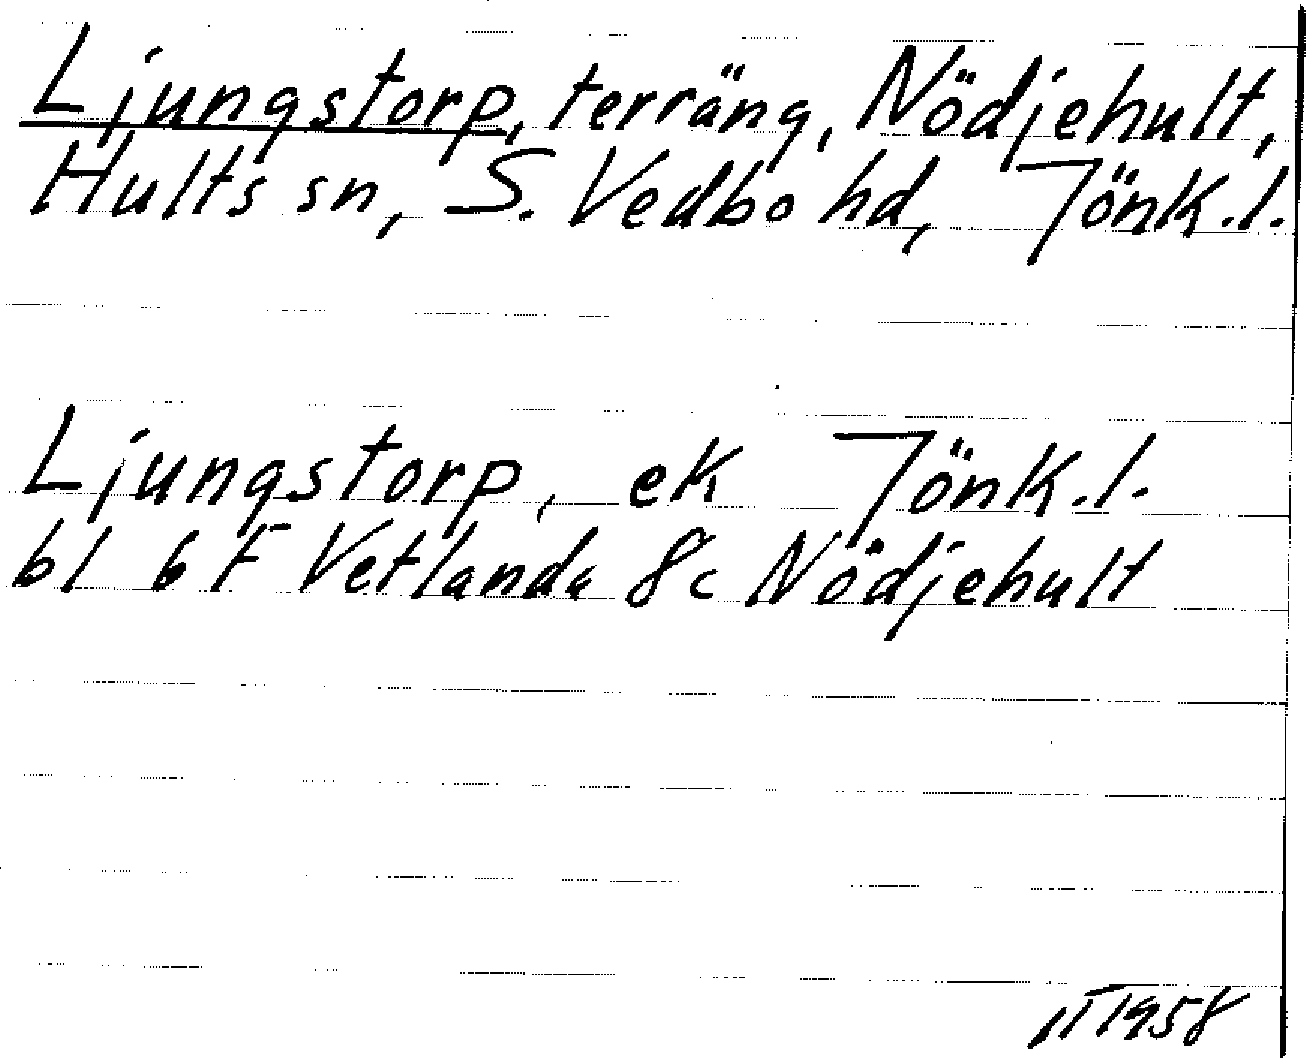 Ljungstorp, terräng, Nödjehult,
Hults sn, S. Vedbo hd, Jönk.l.
Ljungstorp, ek Jönk.l.
bl 6 F Vetlanda 8c Nödjehult
1958